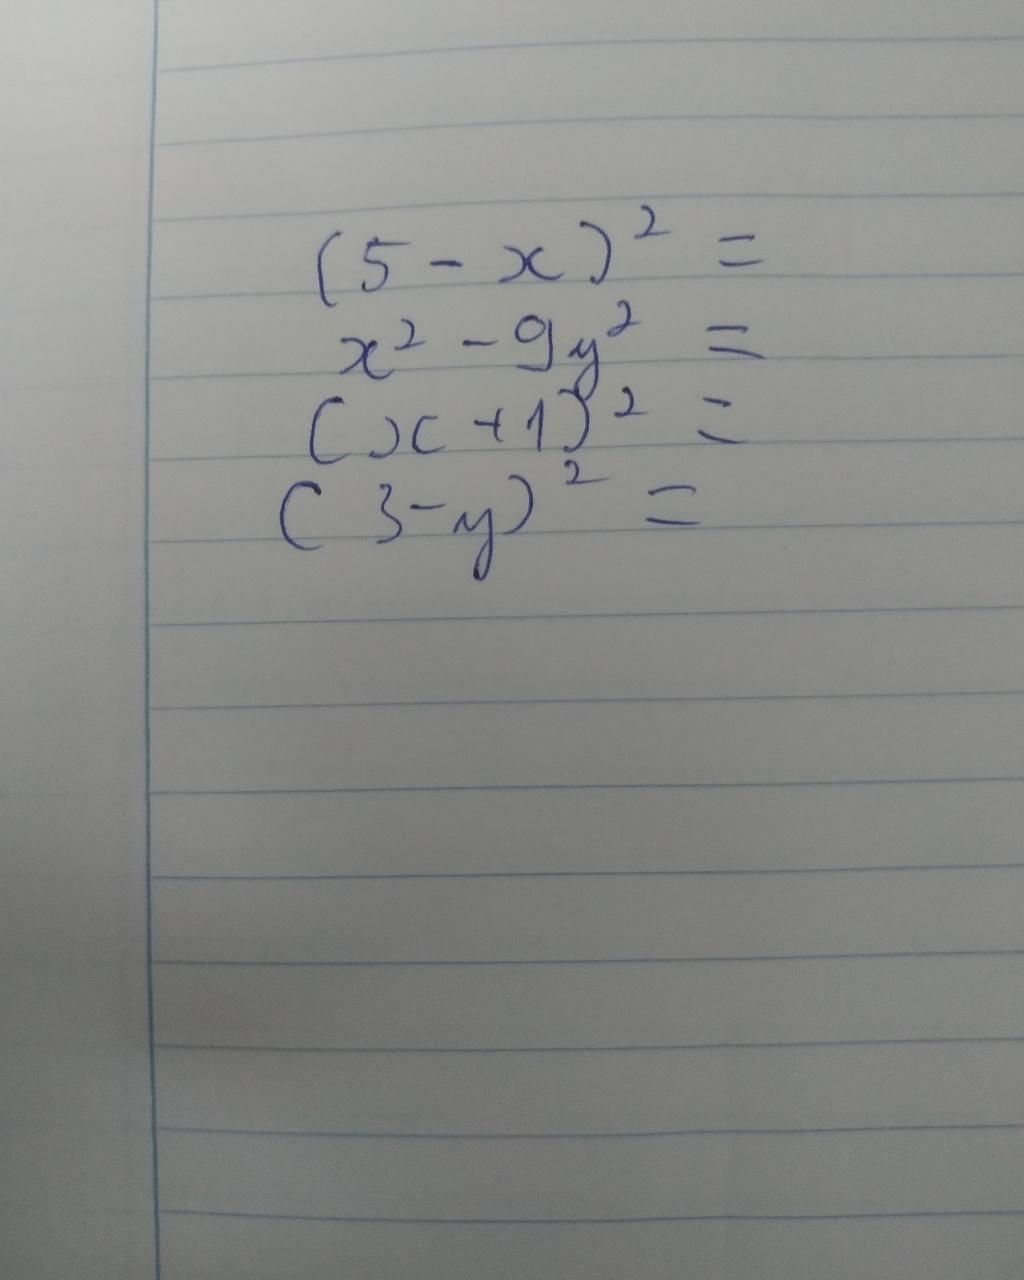 (5 - x)² =
x² - 9y² =
(x + 1)² =
(3 - y)² =